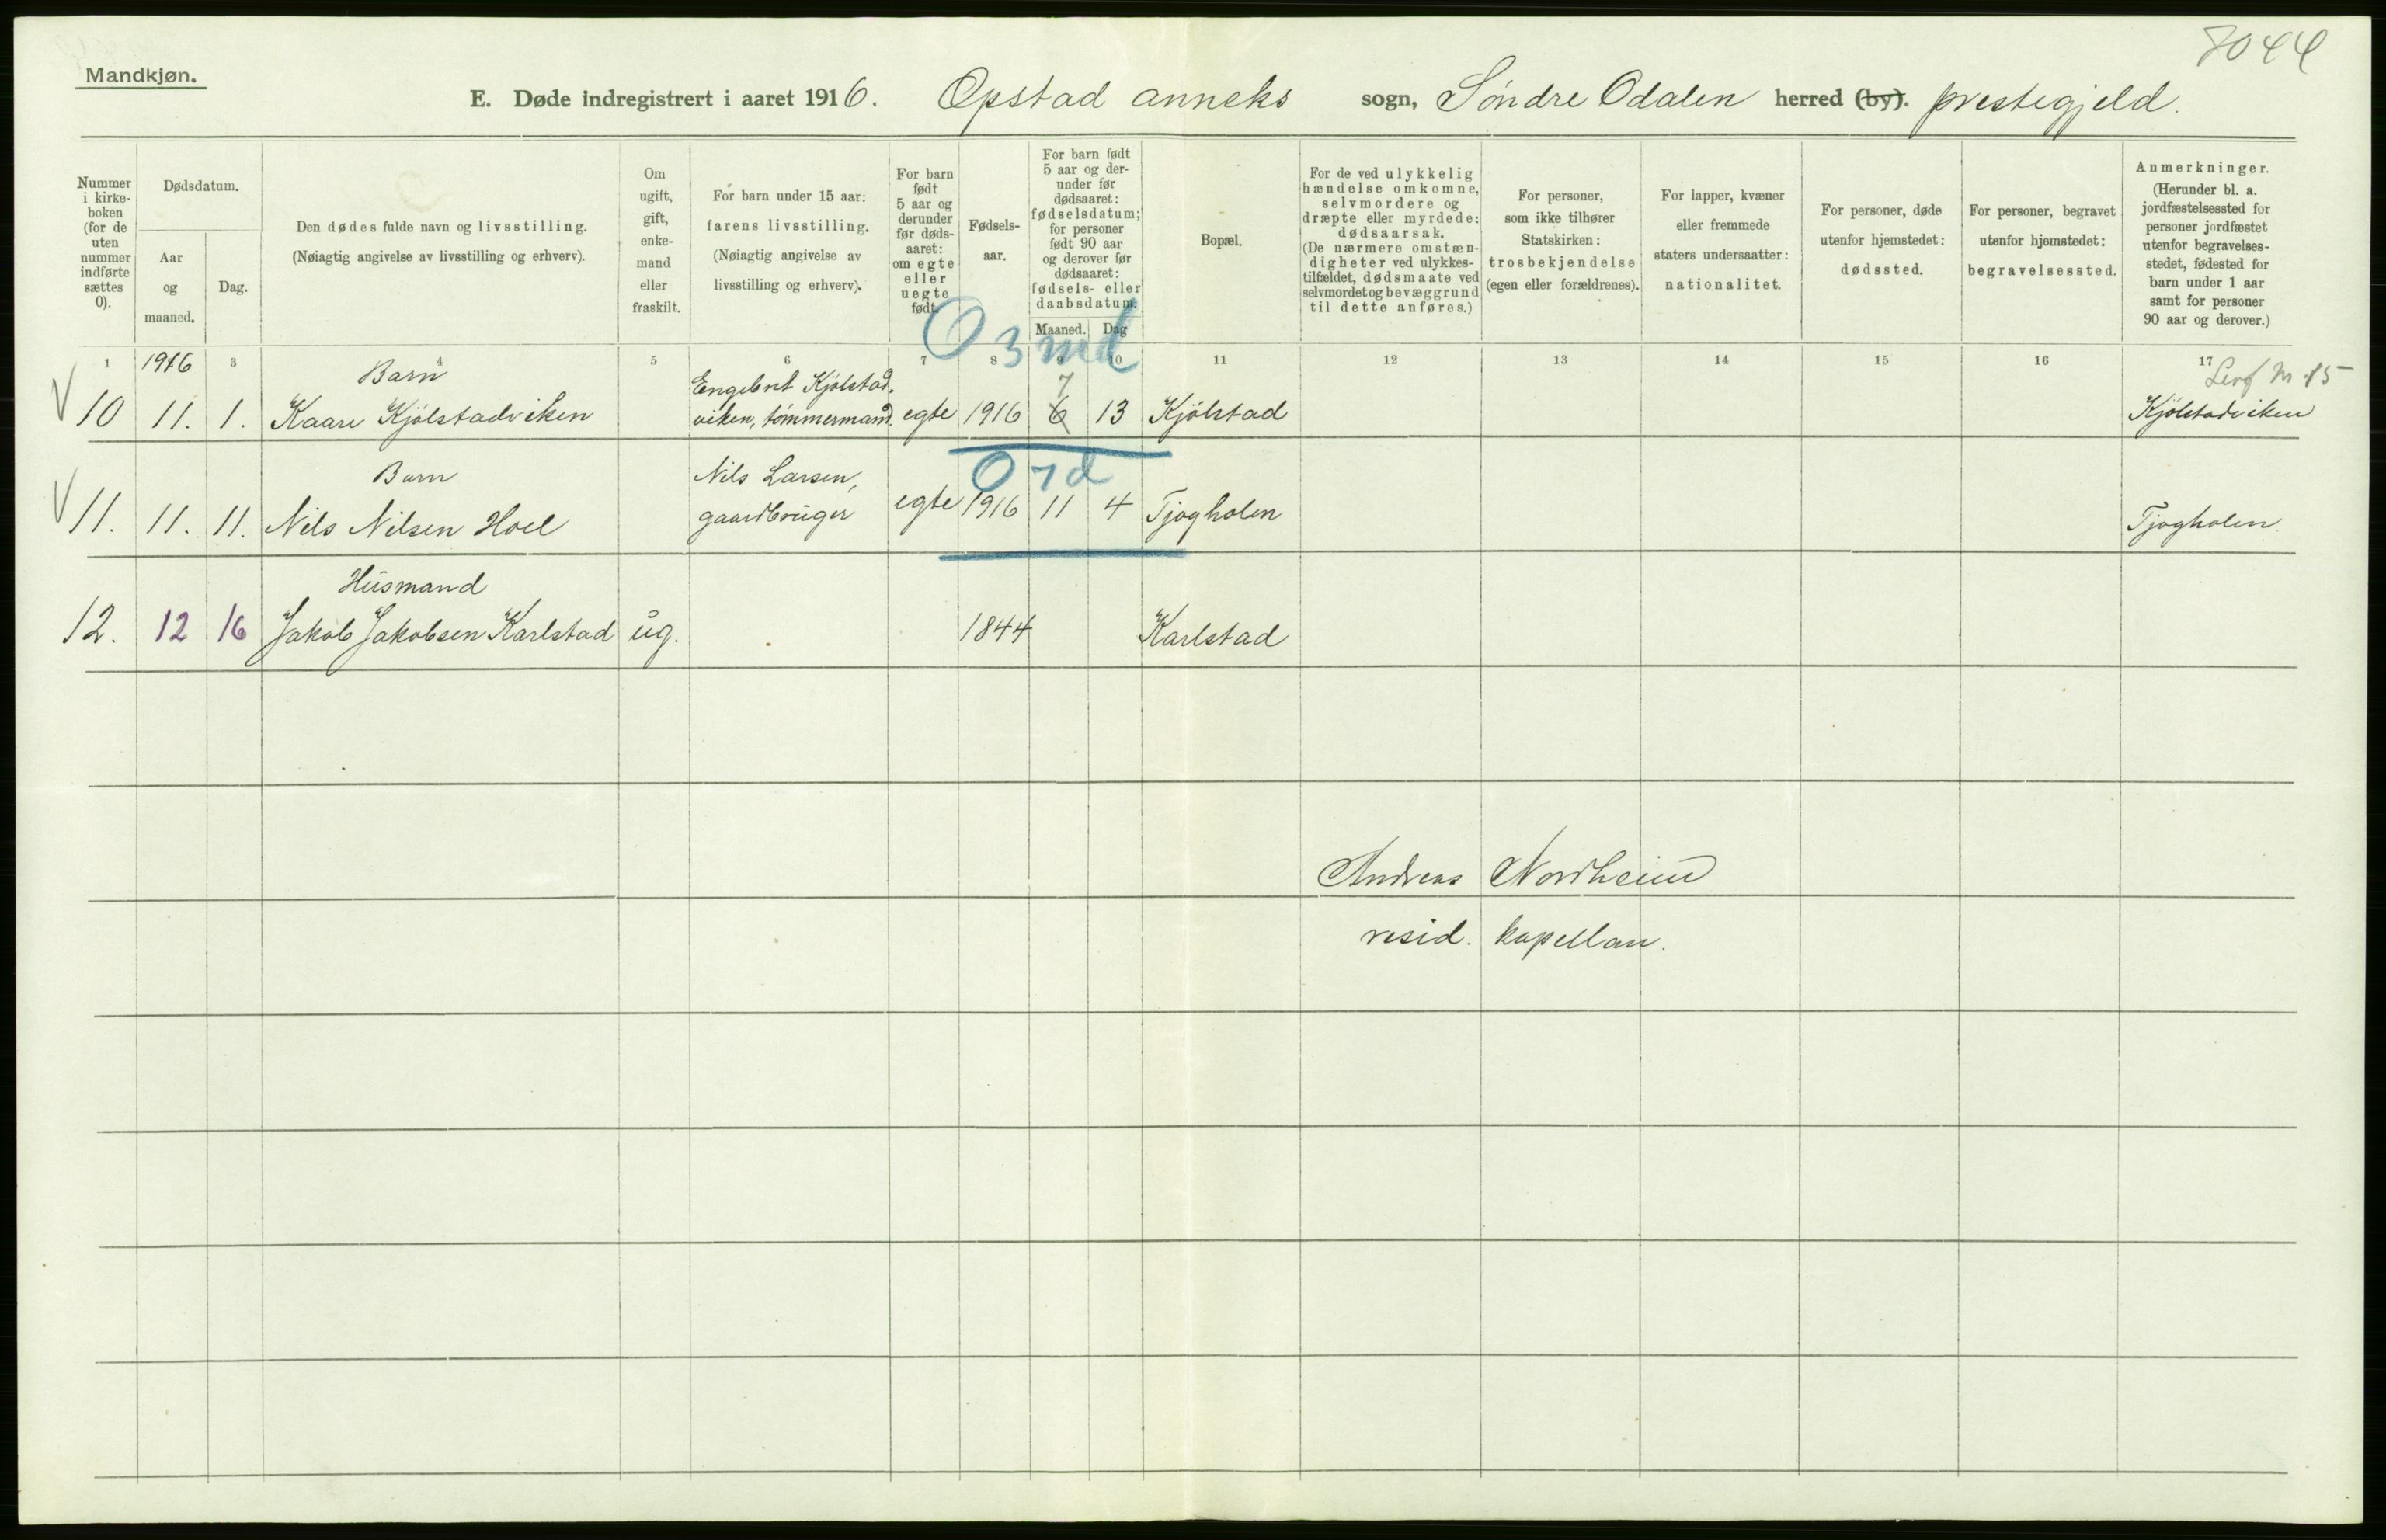 7044
Mandkjøn.
E. Døde indregistrert i aaret 1916. Opstad anneks sogn, Søndre Odalen herred (by). prestegjeld.
Nummer i kirke- boken (for de uten nummer indførte sættes 0).
Dødsdatum.
Aar og maaned.
Dag.
Den dødes fulde navn og livsstilling.
(Nøiagtig angivelse av livsstilling og erhverv).
Om ugift, gift, enke- mand eller fraskilt.
For barn under 15 aar:
farens livsstilling.
(Nøiagtig angivelse av
livsstilling og erhverv).
For barn født 5 aar og derunder før døds- aaret: om egte eller uegte født.
Fødsels- aar.
For barn født 5 aar og der- under før dødsaaret: fødselsdatum; for personer født 90 aar og derover før dødsaaret: fødsels- eller daabsdatum.
Maaned. Dag
Bopæl.
For de ved ulykkelig
hændelse omkomne,
selvmordere og
dræpte eller myrdede:
dødsaarsak.
(De nærmere omstæn-
digheter ved ulykkes-
tilfældet, dødsmaate ved
selvmordet og bevæggrund
til dette anføres.)
For personer,
som ikke tilhører
Statskirken:
trosbekjendelse
(egen eller forældrenes).
For lapper, kvæner
eller fremmede
staters undersaatter:
nationalitet.
For personer, døde
utenfor hjemstedet:
dødssted.
For personer, begravet
utenfor hjemstedet:
begravelsessted.
Anmerkninger.
(Herunder bl. a.
jordfæstelsessted for
personer jordfæstet
utenfor begravelses-
stedet, fødested for
barn under 1 aar
samt for personer
90 aar og derover.)
1 3 4 5 6 7 8 9 10 11 12 13 14 15 16 17
1916
0 3 md
Barn
Engebret Kjölstad-
7
10 11. 1. Kaare Kjölstadviken viken, tømmermand. egte 1916 6 13 Kjölstad Kjölstadviken
0 7 d
Barn
Nils Larsen,
11. 11. 11. Nils Nilsen Hoel gaardbruger egte 1916 11 4 Tjogholen Tjogholen.
Husmand
12. 12 16 Jakob Jakobsen Karlstad ug. 1844 Karlstad
Andreas Nordheim
resid. kapellan.